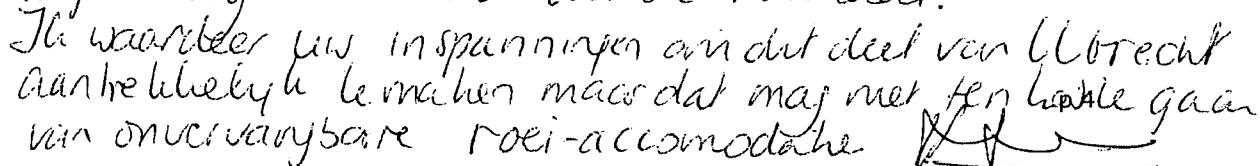 Ik waardeer uw inspanningen om dit deel van Utrecht
aantrekkelijk te maken maar dat mag niet ten koste gaan
van onvervangbare roei-accomodatie